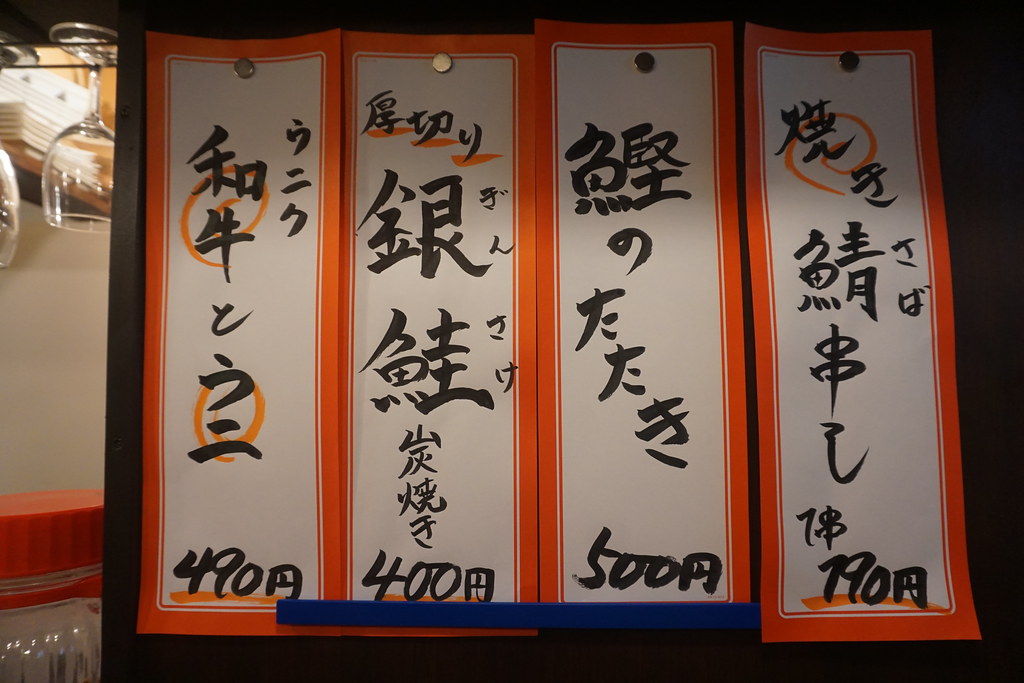 焼き
鯖串し
さば
1串
190円
鰹のたたき
500円
厚切り
銀鮭
ぎんさけ
炭焼き
400円
ウニク
和牛とウニ
490円